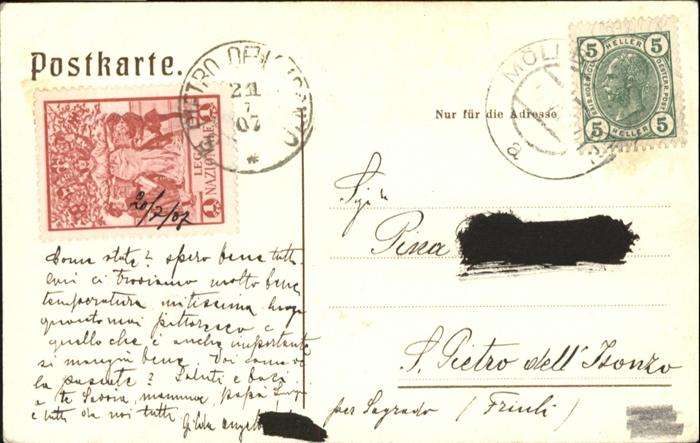 Postkarte.
S. PIETRO DELL'ISONZO
21
7
07
*
5 HELLER 5
5 HELLER 5
MÖLL
a
Nur für die Adresse
LEGA
NAZIONALE
20/7/07
Come state? spero bene tutti.
noi ci troviamo molto bene
temperatura mitissima luogo
quanto mai pittoresco e
quello che è anche importante
si mangia bene. Voi come ve
la passate? Saluti e baci
a te mamma, papà
e tutti da noi tutti
Gilda
Pina
S. Pietro dell'Isonzo
per Sagrado (Friuli)